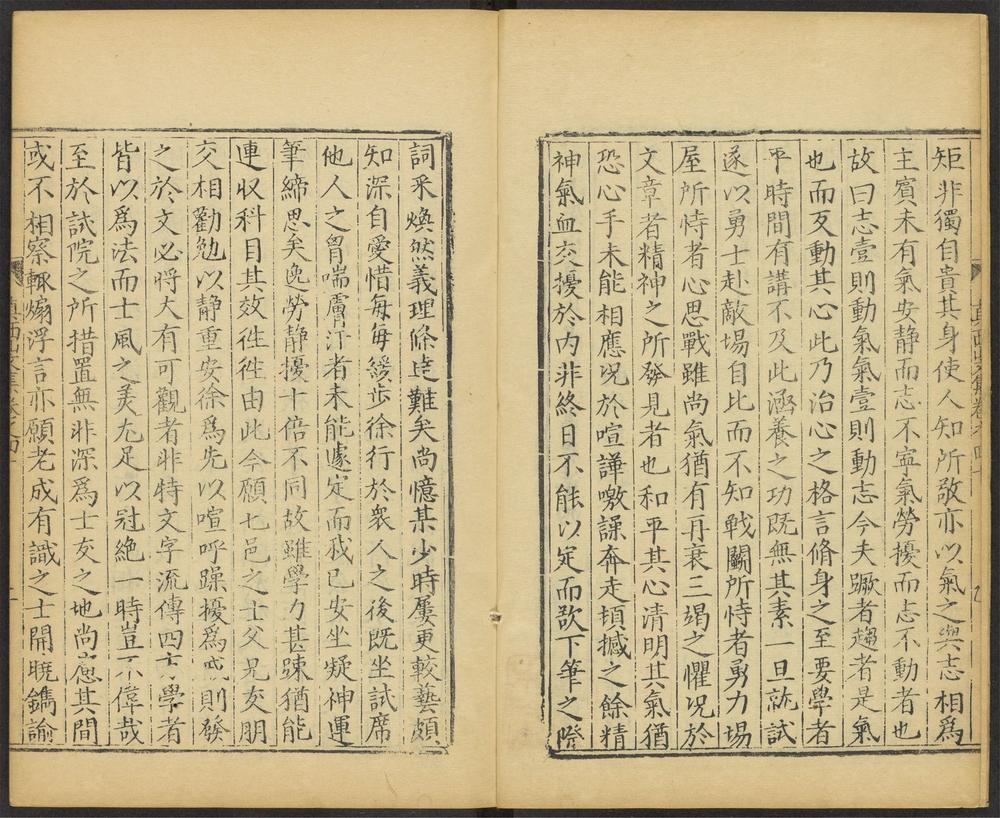 矩非獨自貴其身使人知所敬亦以氣之與志相爲
主賓未有氣安静而志不寕氣勞擾而志不動者也
故曰志壹則動氣氣壹則動志今夫蹶者趨者是氣
也而反動其心此乃治心之格言脩身之至要學者
平時間有講不及此涵養之功既無其素一旦就試
遂以勇士赴敵場自比而不知戰鬬所恃者勇力場
屋所恃者心思戰雖尚氣猶有再衰三竭之懼况於
文章者精神之所發見者也和平其心清明其氣猶
恐心手未能相應况於喧譁噭譟奔走頓撼之餘精
神氣血交擾於内非終日不能以定而欲下筆之際
詞采煥然義理條達難矣尚憶某少時屢更較藝頗
知深自愛惜每每緩步徐行於衆人之後既坐試席
他人之胷喘膚汗者未能遽定而我已安坐凝神運
筆締思矣逸勞静擾十倍不同故雖學力甚踈猶能
連收科目其效徃徃由此今願七邑之士父兄友朋
交相勸勉以静重安徐爲先以喧呼躁擾爲戒則發
之於文必將大有可觀者非特文字流傳四方學者
皆以爲法而士風之美尤足以冠絶一時豈不偉哉
至於試院之所措置無非深爲士友之地尚慮其間
或不相察輙煽浮言亦願老成有識之士開曉鐫諭